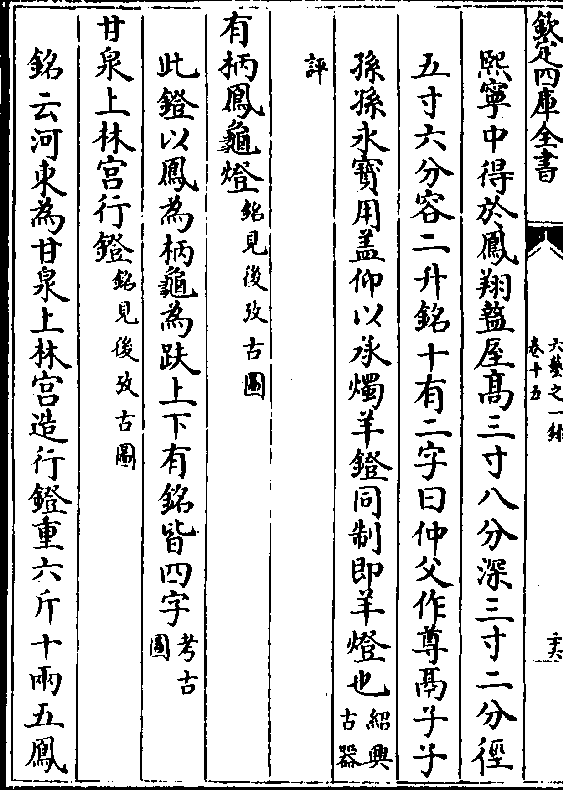 欽定四庫全書
六藝之一錄
卷十五
熙寧中得於鳳翔盩厔高三寸八分深三寸二分徑
五寸六分容二升銘十有二字曰仲父作尊鬲子子
孫孫永寳用盖仰以承燭羊鐙同制即羊燈也紹興古器
評
有柄鳳龜燈銘見後攷古圖
此鐙以鳳為柄龜為趺上下有銘皆四字考古圖
甘泉上林宫行鐙銘見後攷古圖
銘云河東為甘泉上林宫造行鐙重六斤十兩五鳳